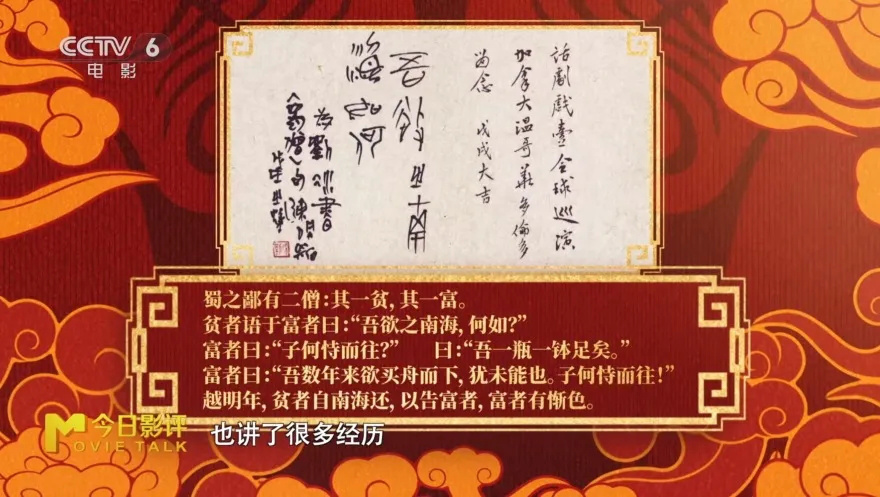 CCTV 6
电影
话劇戲臺全球巡演
加拿大温哥華多倫多
留念 戊戌大吉
吾欲之南
海何如
蜀之鄙有二僧：其一贫，其一富。
贫者语于富者曰：“吾欲之南海，何如？”
富者曰：“子何恃而往？” 曰：“吾一瓶一钵足矣。”
富者曰：“吾数年来欲买舟而下，犹未能也。子何恃而往！”
越明年，贫者自南海还，以告富者，富者有惭色。
今日影评
MOVIE TALK
也讲了很多经历